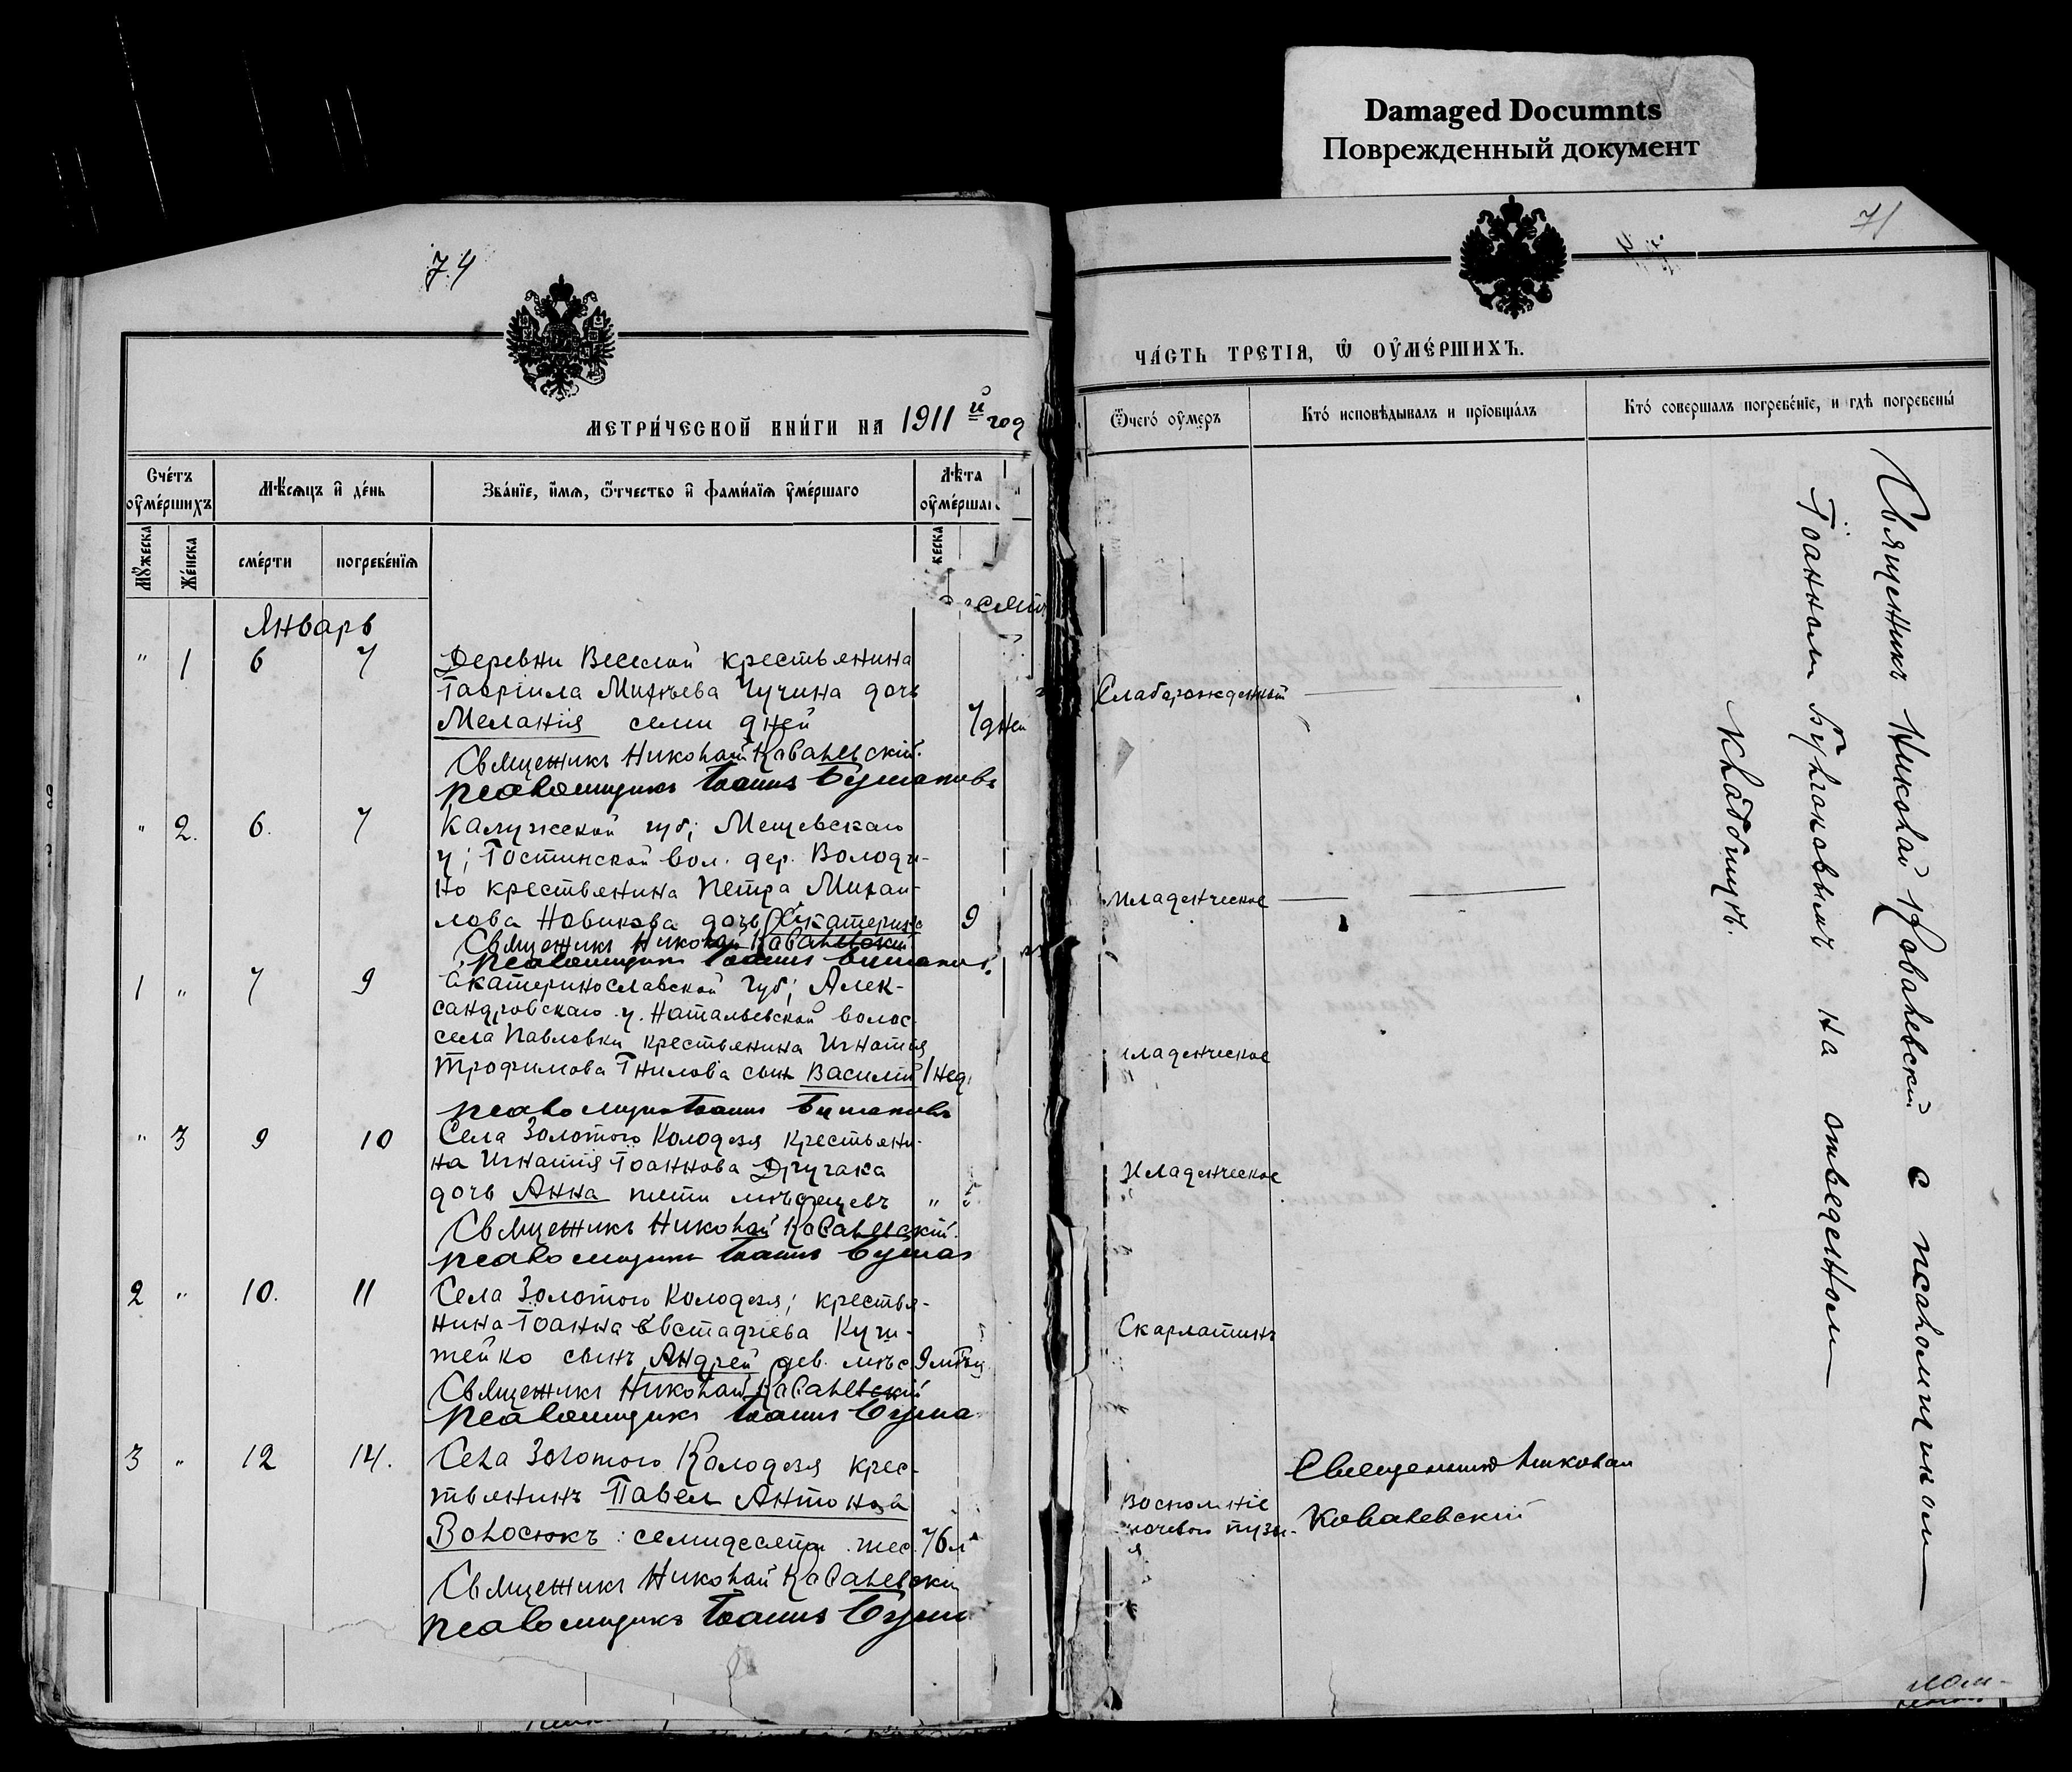 Damaged Documnts
Поврежденный документ
74
МЕТРИ́ЧЕСКОЙ КНИ́ГИ НА 1911 й год
Сче́тъ ѹ҆ме́ршихъ
Мѣ́сѧцъ и҆ де́нь
Зва́нїе, и҆́мѧ, ѻ҆́тчество и҆ фами́лїѧ ᲂу҆ме́ршаго
Лѣ́та ѹ҆ме́ршаг
Мꙋжеска
Же́нска
сме́рти
погребе́нїѧ
жеска
Январь
" 1 6 7 Деревни Веселой крестьянина
Гавріила Михѣева Чучина дочь
Меланія семи дней 7 дней
Священникъ Николай Ковалевскій.
Псаломщикъ Іоаннъ
" 2. 6. 7 Калужской губ; Мещевскаго
у; Гостинской вол. дер. Володи-
но крестьянина Петра Михаи-
лова Новикова дочь Екатерина 9
Священникъ Николай Ковалевскій
Псаломщикъ Іоаннъ
1 " 7 9 Екатеринославской губ; Алек-
сандровскаго у. Натальевской волос
села Павловки крестьянина Игнатія
Трофимова Гнилова сынъ Василій 1 нед.
Псаломщикъ Іоаннъ
" 3 9 10 Села Золотого Колодезя крестьяни-
на Игнатія Іоаннова Другака
дочь Анна пяти мѣсяцевъ "
Священникъ Николай Ковалевскій.
Псаломщикъ Іоаннъ
2 " 10. 11 Села Золотого Колодезя; крестья-
нина Іоанна Евстафіева Кучи-
тейко сынъ Андрей дев. мѣс 9 мѣсц
Священникъ Николай Ковалевскій
Псаломщикъ Іоаннъ
3 " 12 14. Села Золотого Колодезя крес-
тьянинъ Павел Антонов
Волосюкъ: семидесяти шес. 76 л
Священникъ Николай Ковалевскій
Псаломщикъ Іоаннъ
71
ЧА́СТЬ ТРЕТІЯ, Ѿ ОУ҆МЕ́РШИХЪ.
Ѿчего́ ѹ҆́меръ
Кто́ исповѣ́дывалъ и прїобща́лъ
Кто́ соверша́лъ погребе́нїе, и гдѣ̀ погребены̀
Слаборожденной
Младенческое
младенческое
Младенческое
Скарлатинъ
Воспаленіе
мочевого пузы-
я
Священникъ Николай
Ковалевскій
Священникъ Николай Ковалевскій с псаломщиком
Іоанном на отведенном
кладбищѣ.